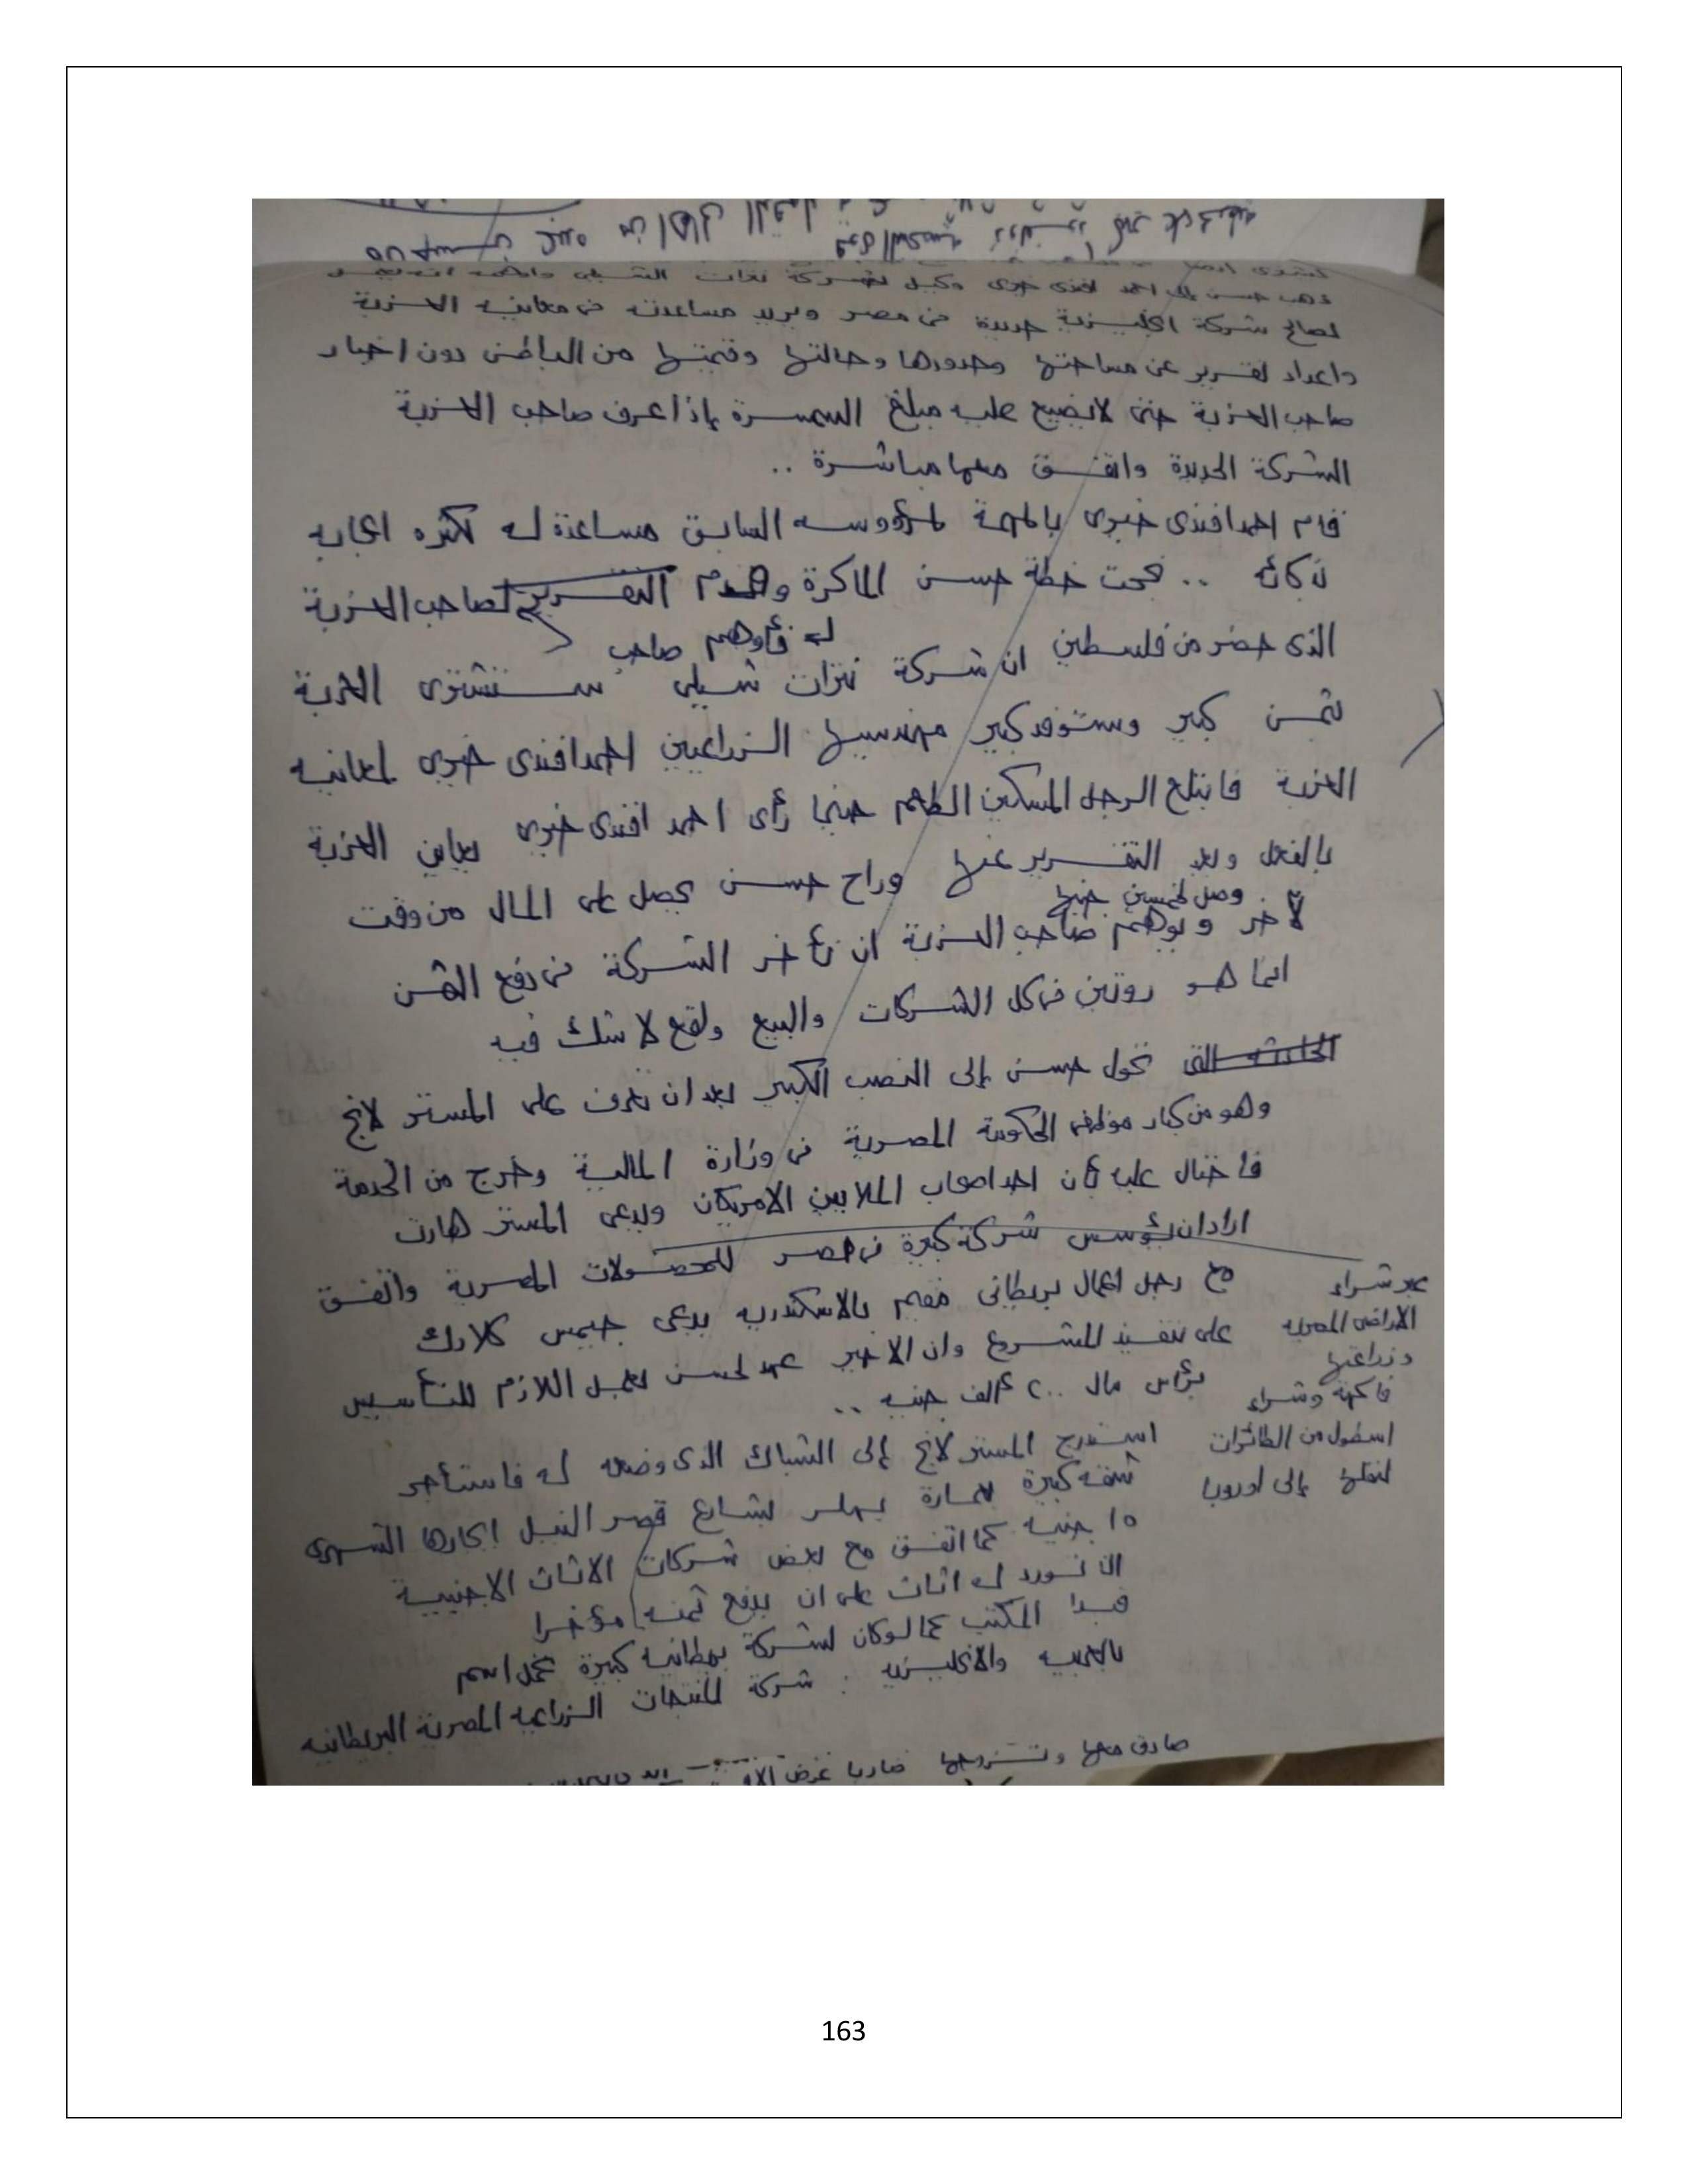 ذهب حسن إلى احمد افندى خيرى وكيل لشركة نترات الشيلى
لصالح شركة انجليزية جديدة فى مصر ويريد مساعدته فى معاينة العزبة
واعداد تقرير عن مساحتها وحدودها وحالتها وقيمتها من الباطن دون اخبار
صاحب العزبة حتى لا تضيع عليه مبلغ السمسرة إذا عرف صاحب العزبة
الشركة الجديدة واتفق معها مباشرة ..
قام احمد افندى خيرى بالمهمة لمرؤوسه السابق مساعدة له لكثرة اعجابه
بذكائه .. نجحت خطة حسن الماكرة وقدم التقرير لصاحب العزبة
الذى حضر من فلسطين له فأوهم صاحب
ان شركة نترات شيلى ستشترى العزبة
بثمن كبير وستوفد كبير مهندسيها الزراعيين احمد افندى خيرى لمعاينة
العزبة فابتلع الرجل المسكين الطعم حينما رأى احمد افندى خيرى يعاين العزبة
بالفعل ويعد التقرير عنها وراح حسن يحصل على المال من وقت
لآخر وصل لخمسين جنيها ويوهم صاحب العزبة ان تأخر الشركة فى دفع الثمن
انما هو روتين فى كل الشركات والبيع واقع لا شك فيه
تحول حسن إلى النصب الكبير بعد ان تعرف على المستر لانج
وهو من كبار موظفى الحكومة المصرية فى وزارة المالية وخرج من الخدمة
فاحتال عليه بأن احد اصحاب الملايين الامريكان ويدعى المستر هارت
اراد ان يؤسس شركة كبيرة فى مصر للمحصولات المصرية واتفق
مع رجل اعمال بريطانى مقيم بالاسكندرية يدعى جيمس كلارك
على تنفيذ المشروع وان الاخير عهد لحسن بعمل اللازم للتأسيس
برأس مال ٢٠٠ ألف جنيه ..
عبر شراء
الاراضى المصرية
وزراعتها
فاكهة وشراء
اسطول من الطائرات
لنقلها إلى اوروبا
استدرج المستر لانج إلى الشباك الذى وضعه له فاستأجر
شقة كبيرة بعمارة بهلر بشارع قصر النيل ايجارها الشهرى
١٥ جنيه كما اتفق مع بعض شركات الاثاث الاجنبية
ان تورد له اثاث على ان يدفع ثمنه مؤخرا
فبدا المكتب كما لو كان لشركة بريطانية كبيرة تحمل اسم
بالعربية والانجليزية : شركة المنتجات الزراعية المصرية البريطانية
صادق معها وتتزوجها ضاربا عرض
163